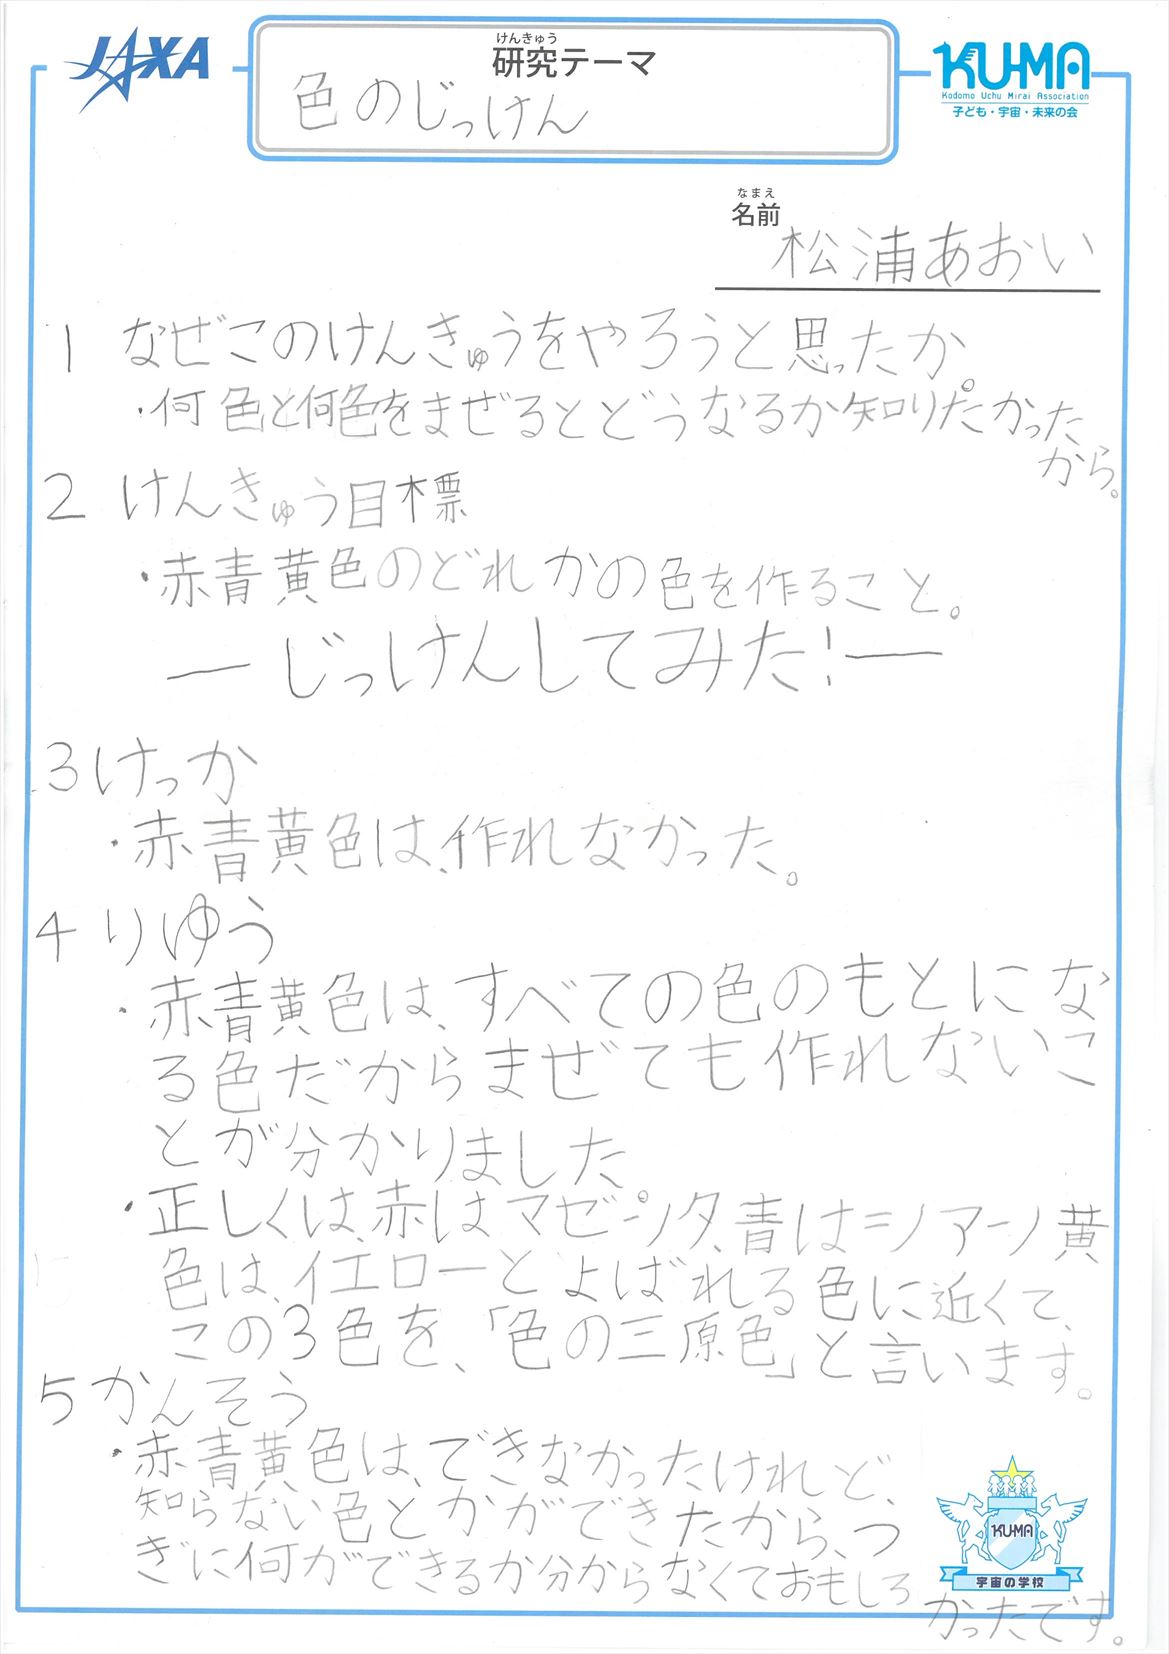 JAXA
けんきゅう
研究テーマ
色のじっけん
KU-MA
Kodomo Uchu Mirai Association
子ども・宇宙・未来の会
なまえ
名前
松浦あおい
1 なぜこのけんきゅうをやろうと思ったか。
・何色と何色をまぜるとどうなるか知りたかった
から。
2 けんきゅう目標
・赤青黄色のどれかの色を作ること。
―じっけんしてみた!―
3けっか
・赤青黄色は、作れなかった。
4 りゆう
・赤青黄色は、すべての色のもとにな
る色だからまぜても作れないこ
とが分かりました
・正しくは、赤はマゼンタ、青はシアン黄
色は、イエローとよばれる色に近くて、
この3色を、「色の三原色」と言います。
5かんそう
・赤青黄色は、できなかったけれど、
知らない色とかができたから、つ
ぎに何ができるか分からなくておもしろ
かったです。
KU-MA
宇宙の学校